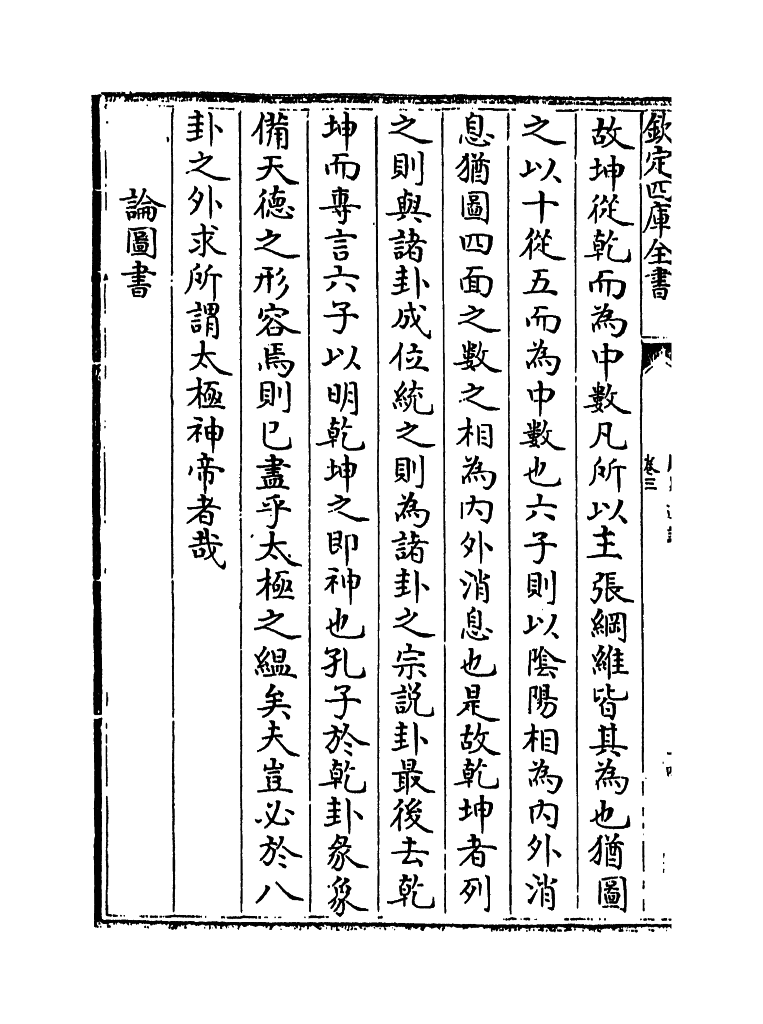 欽定四庫全書
卷三
故坤從乾而為中數凡所以主張綱維皆其為也猶圖
之以十從五而為中數也六子則以陰陽相為内外消
息猶圖四面之數之相為内外消息也是故乾坤者列
之則與諸卦成位統之則為諸卦之宗説卦最後去乾
坤而專言六子以明乾坤之即神也孔子於乾卦彖象
備天德之形容焉則已盡乎太極之緼矣夫豈必於八
卦之外求所謂太極神帝者哉
論圖書